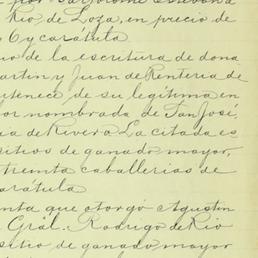 Rio de Loza, en precio de
6 y carátula
io de la escritura de dona
artin y Juan de Renteria de
utenece de su legitima en
or nombrada de San José,
ia de Rivera La citada es
sitios de ganado mayor,
treinta caballerias de
arátula
enta que otorgó Agustin
Gral. Rodrigo de Rio
sitio de ganado mayor